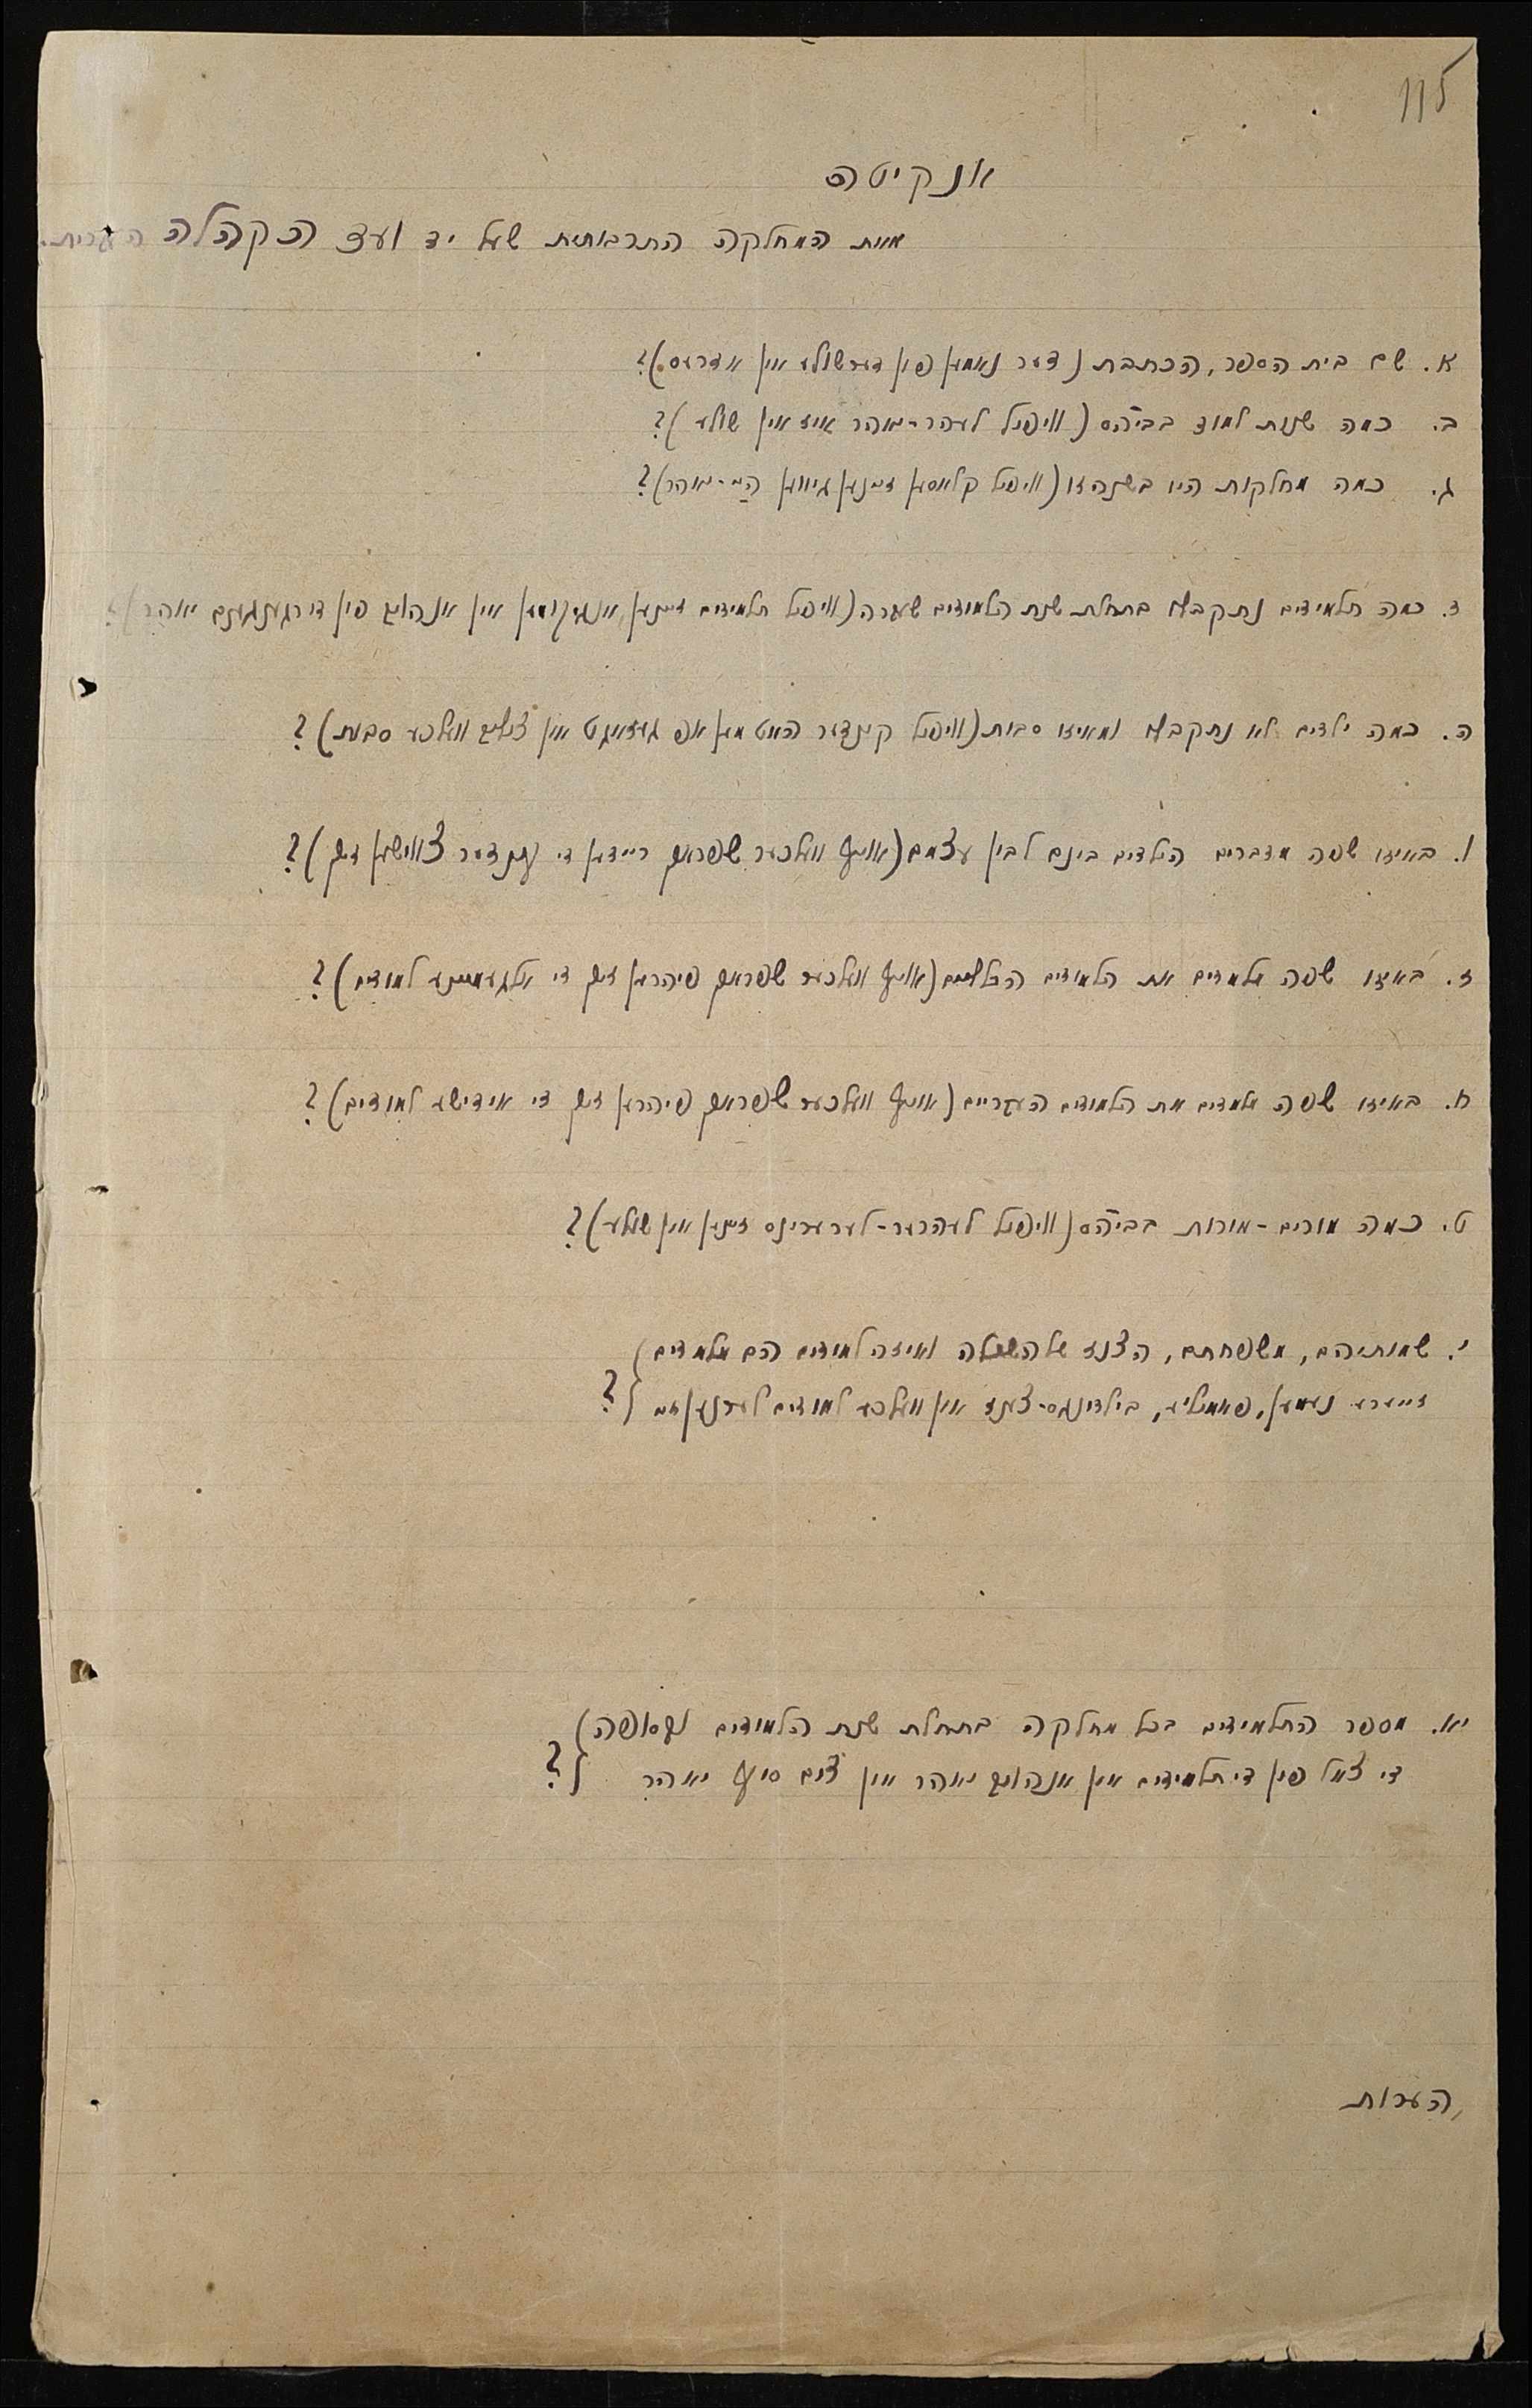 115
אנקיטה
מאת המחלקה התרבותית שעל יד ועד הקהלה העברית.
א. שם בית הספר, הכתבת (דער נאמען פין דער שולע אין אדרעס)?
ב. כמה שנות למוד בביה״ס (וויפיל לעהר-יאהר איז אין שולע)?
ג. כמה מחלקות היו בשנה זו (וויפיל קלאסען זיינען געווען היי-יאהר)?
ד. כמה תלמידים נתקבלו בתחלת שנת הלמודים שעברה (וויפיל תלמידים זיינען אנגעקומען אין אנהויב פין דיר געגאנגענעם יאהר)?
ה. כמה ילדים לא נתקבלו ומאיזו סבות (וויפיל קינדער האט מען אפ געזאגט אין צוליב וועלכע סבות)?
ו. באיזו שפה מדברים הילדים בינם לבין עצמם (אויף וועלכער שפראך ריידען די קינדער צווישען זיך)?
ז. באיזו שפה מלמדים את הלמודים הכלליים (אויף וועלכער שפראך פיהרען זיך די אלגעמיינע למודים)?
ח. באיזו שפה מלמדים את הלמודים העבריים (אויף וועלכער שפראך פיהרען זיך די אידישע למודים)?
ט. כמה מורים-מורות בביה״ס (וויפיל לעהרער-לערערינס זיינען אין שולע)?
י. שמותיהם, משפחתם, הצנז של השכלה ואיזה למודים הם מלמדים)
זייערע נעמען, פאמיליע, בילדינגס-צענז אין וועלכע למודים לערנען זיי ?
יא. מספר התלמידים בכל מחלקה בתחלת שנת הלמודים ובסופה)
די צאל פין די תלמידים אין אנהויב יאהר אין צום סוף יאהר ?
הערות,